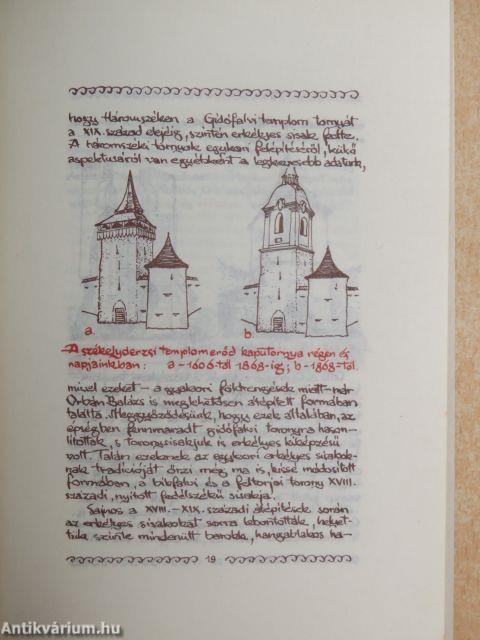 hogy Háromszéken a Gidófalvi templom tornyát
a XIX. század elejéig, szintén erkélyes sisak fedte.
A háromszéki tornyok egykori felépítéséről, külső
aspektusáról van egyébként a legkevesebb adatunk,
a.
b.
A székelyderzsi templomerőd kaputornya régen és
napjainkban: a - 1606-tól 1868-ig; b - 1868-tól.
mivel ezeket - a gyakori földrengések miatt - már
Orbán Balázs is meglehetősen átépített formában
találta. Meggyőződésünk, hogy ezek általában, az
épségben fennmaradt gidófalvi toronyra hason-
lítottak, s toronysisakjuk is erkélyes kiképzésű
volt. Talán ezeknek az egykori erkélyes sisakok-
nak tradícióját őrzi még ma is, kissé módosított
formában, a bikfalvi és a feltorjai torony XVIII.
századi, nyitott fedélszékű sisakja.
Sajnos a XVIII. - XIX. századi átépítések során
az erkélyes sisakokat sorra lebontották, helyet-
tük szinte mindenütt barokk, hangablakos ha-
19
Antikvárium.hu